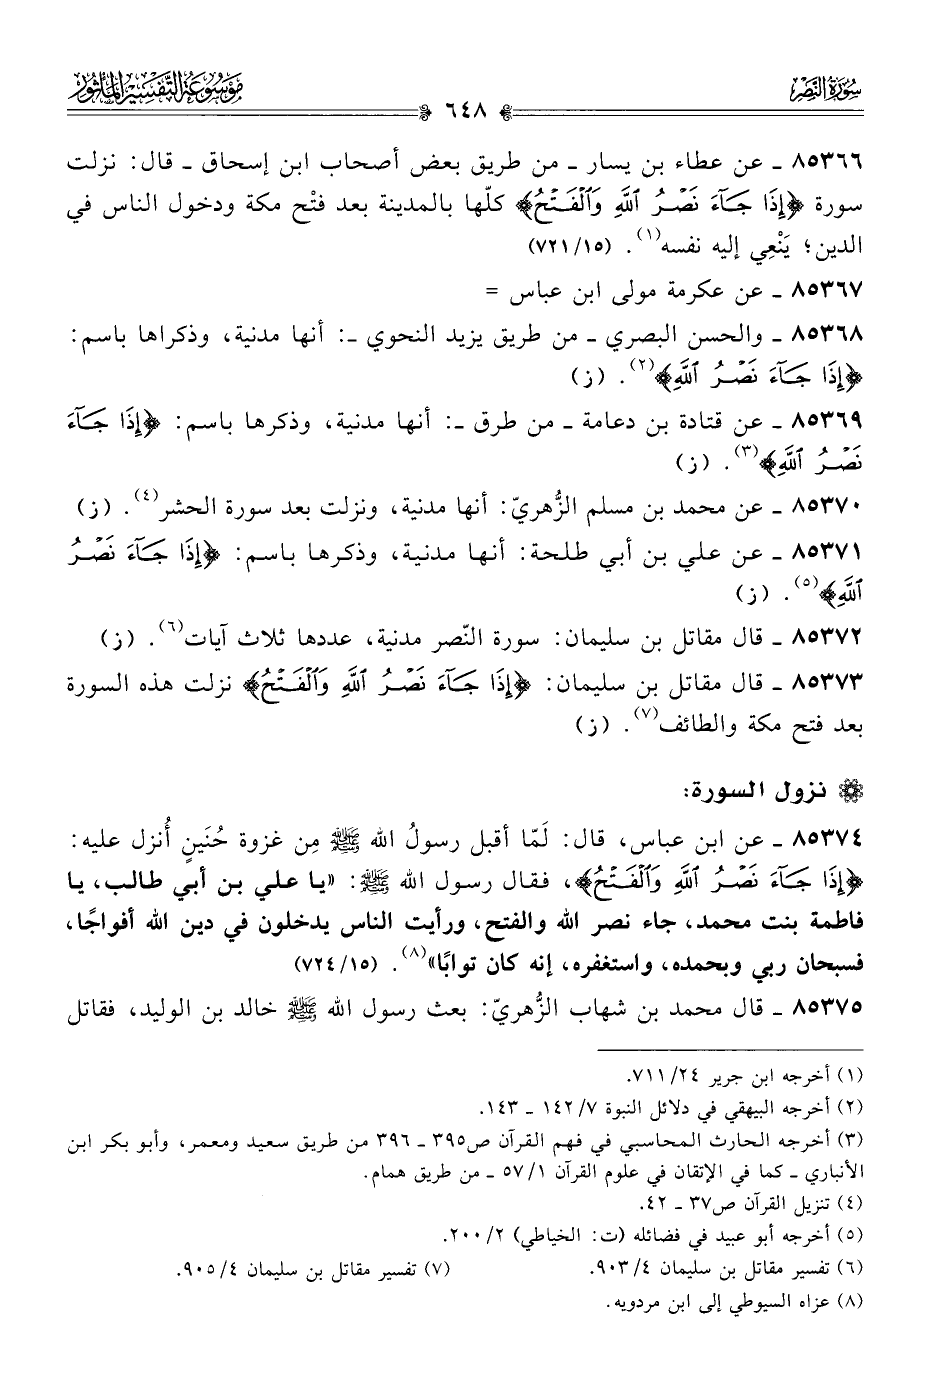 سُورَةُ النَّصْرِ
مَوْسُوعَةُ التَّفْسِيرِ المَأْثُورِ
٦٤٨
٨٥٣٦٦ ـ عن عطاء بن يسار ـ من طريق بعض أصحاب ابن إسحاق ـ قال: نزلت
سورة ﴿إِذَا جَآءَ نَصۡرُ ٱللَّهِ وَٱلۡفَتۡحُ﴾ كلّها بالمدينة بعد فتْح مكة ودخول الناس في
الدين؛ يَنْعِي إليه نفسه(١). (١٥/ ٧٢١)
٨٥٣٦٧ ـ عن عكرمة مولى ابن عباس =
٨٥٣٦٨ ـ والحسن البصري ـ من طريق يزيد النحوي ـ: أنها مدنية، وذكراها باسم:
﴿إِذَا جَآءَ نَصۡرُ ٱللَّهِ﴾(٢). (ز)
٨٥٣٦٩ ـ عن قتادة بن دعامة ـ من طرق ـ: أنها مدنية، وذكرها باسم: ﴿إِذَا جَآءَ
نَصۡرُ ٱللَّهِ﴾(٣). (ز)
٨٥٣٧٠ ـ عن محمد بن مسلم الزُّهريّ: أنها مدنية، ونزلت بعد سورة الحشر(٤). (ز)
٨٥٣٧١ ـ عن علي بن أبي طلحة: أنها مدنية، وذكرها باسم: ﴿إِذَا جَآءَ نَصۡرُ
ٱللَّهِ﴾(٥). (ز)
٨٥٣٧٢ ـ قال مقاتل بن سليمان: سورة النّصر مدنية، عددها ثلاث آيات(٦). (ز)
٨٥٣٧٣ ـ قال مقاتل بن سليمان: ﴿إِذَا جَآءَ نَصۡرُ ٱللَّهِ وَٱلۡفَتۡحُ﴾ نزلت هذه السورة
بعد فتح مكة والطائف(٧). (ز)
نزول السورة:
٨٥٣٧٤ ـ عن ابن عباس، قال: لَمّا أقبل رسولُ الله ﷺ مِن غزوة حُنَينٍ أُنزل عليه:
﴿إِذَا جَآءَ نَصۡرُ ٱللَّهِ وَٱلۡفَتۡحُ﴾، فقال رسول الله ﷺ: «يا علي بن أبي طالب، يا
فاطمة بنت محمد، جاء نصر الله والفتح، ورأيت الناس يدخلون في دين الله أفواجًا،
فسبحان ربي وبحمده، واستغفره، إنه كان توابًا»(٨). (١٥/ ٧٢٤)
٨٥٣٧٥ ـ قال محمد بن شهاب الزُّهريّ: بعث رسول الله ﷺ خالد بن الوليد، فقاتل
(١) أخرجه ابن جرير ٢٤/ ٧١١.
(٢) أخرجه البيهقي في دلائل النبوة ٧/ ١٤٢ ـ ١٤٣.
(٣) أخرجه الحارث المحاسبي في فهم القرآن ص٣٩٥ ـ ٣٩٦ من طريق سعيد ومعمر، وأبو بكر ابن
الأنباري ـ كما في الإتقان في علوم القرآن ١/ ٥٧ ـ من طريق همام.
(٤) تنزيل القرآن ص٣٧ ـ ٤٢.
(٥) أخرجه أبو عبيد في فضائله (ت: الخياطي) ٢/ ٢٠٠.
(٦) تفسير مقاتل بن سليمان ٤/ ٩٠٣. (٧) تفسير مقاتل بن سليمان ٤/ ٩٠٥.
(٨) عزاه السيوطي إلى ابن مردويه.